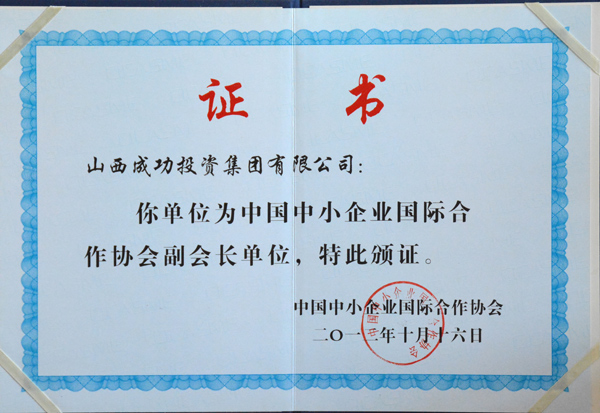 证书
山西成功投资集团有限公司：
你单位为中国中小企业国际合
作协会副会长单位，特此颁证。
中国中小企业国际合作协会
二〇一二年十月十六日